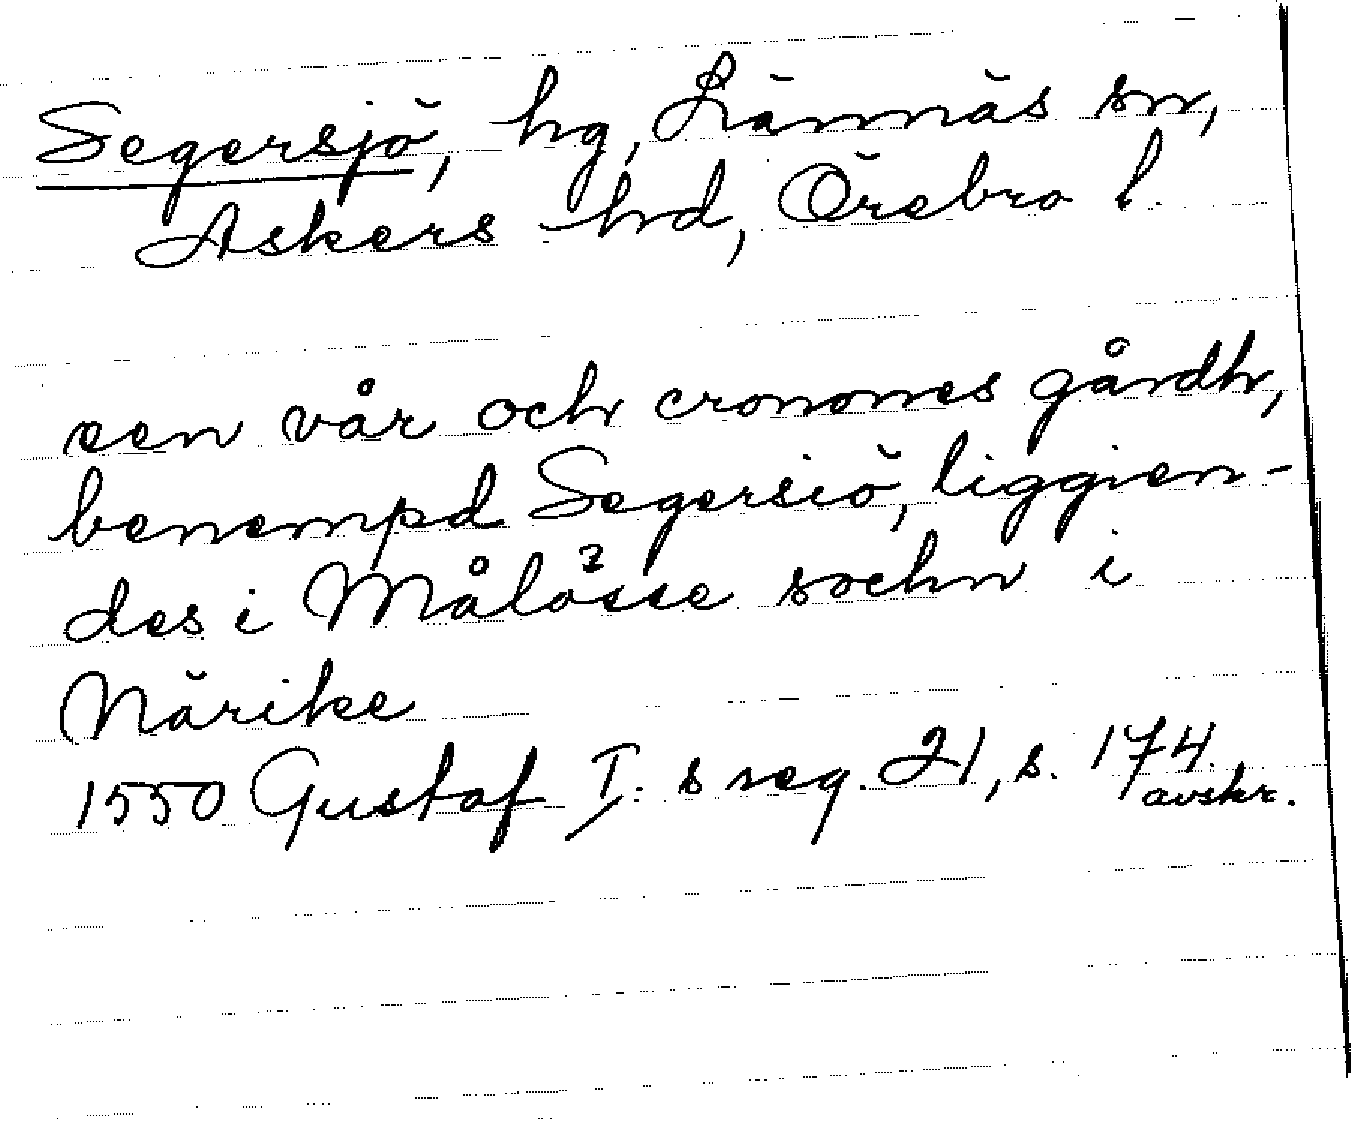 Segersjö, hg, Lännäs sn,
Askers hd, Örebro l.
een vår och cronones gårdh,
benempd Segersiö, liggien-
des i Målösse sochn i
Närike
1550 Gustaf I:s reg. 21, s. 174.
avskr.